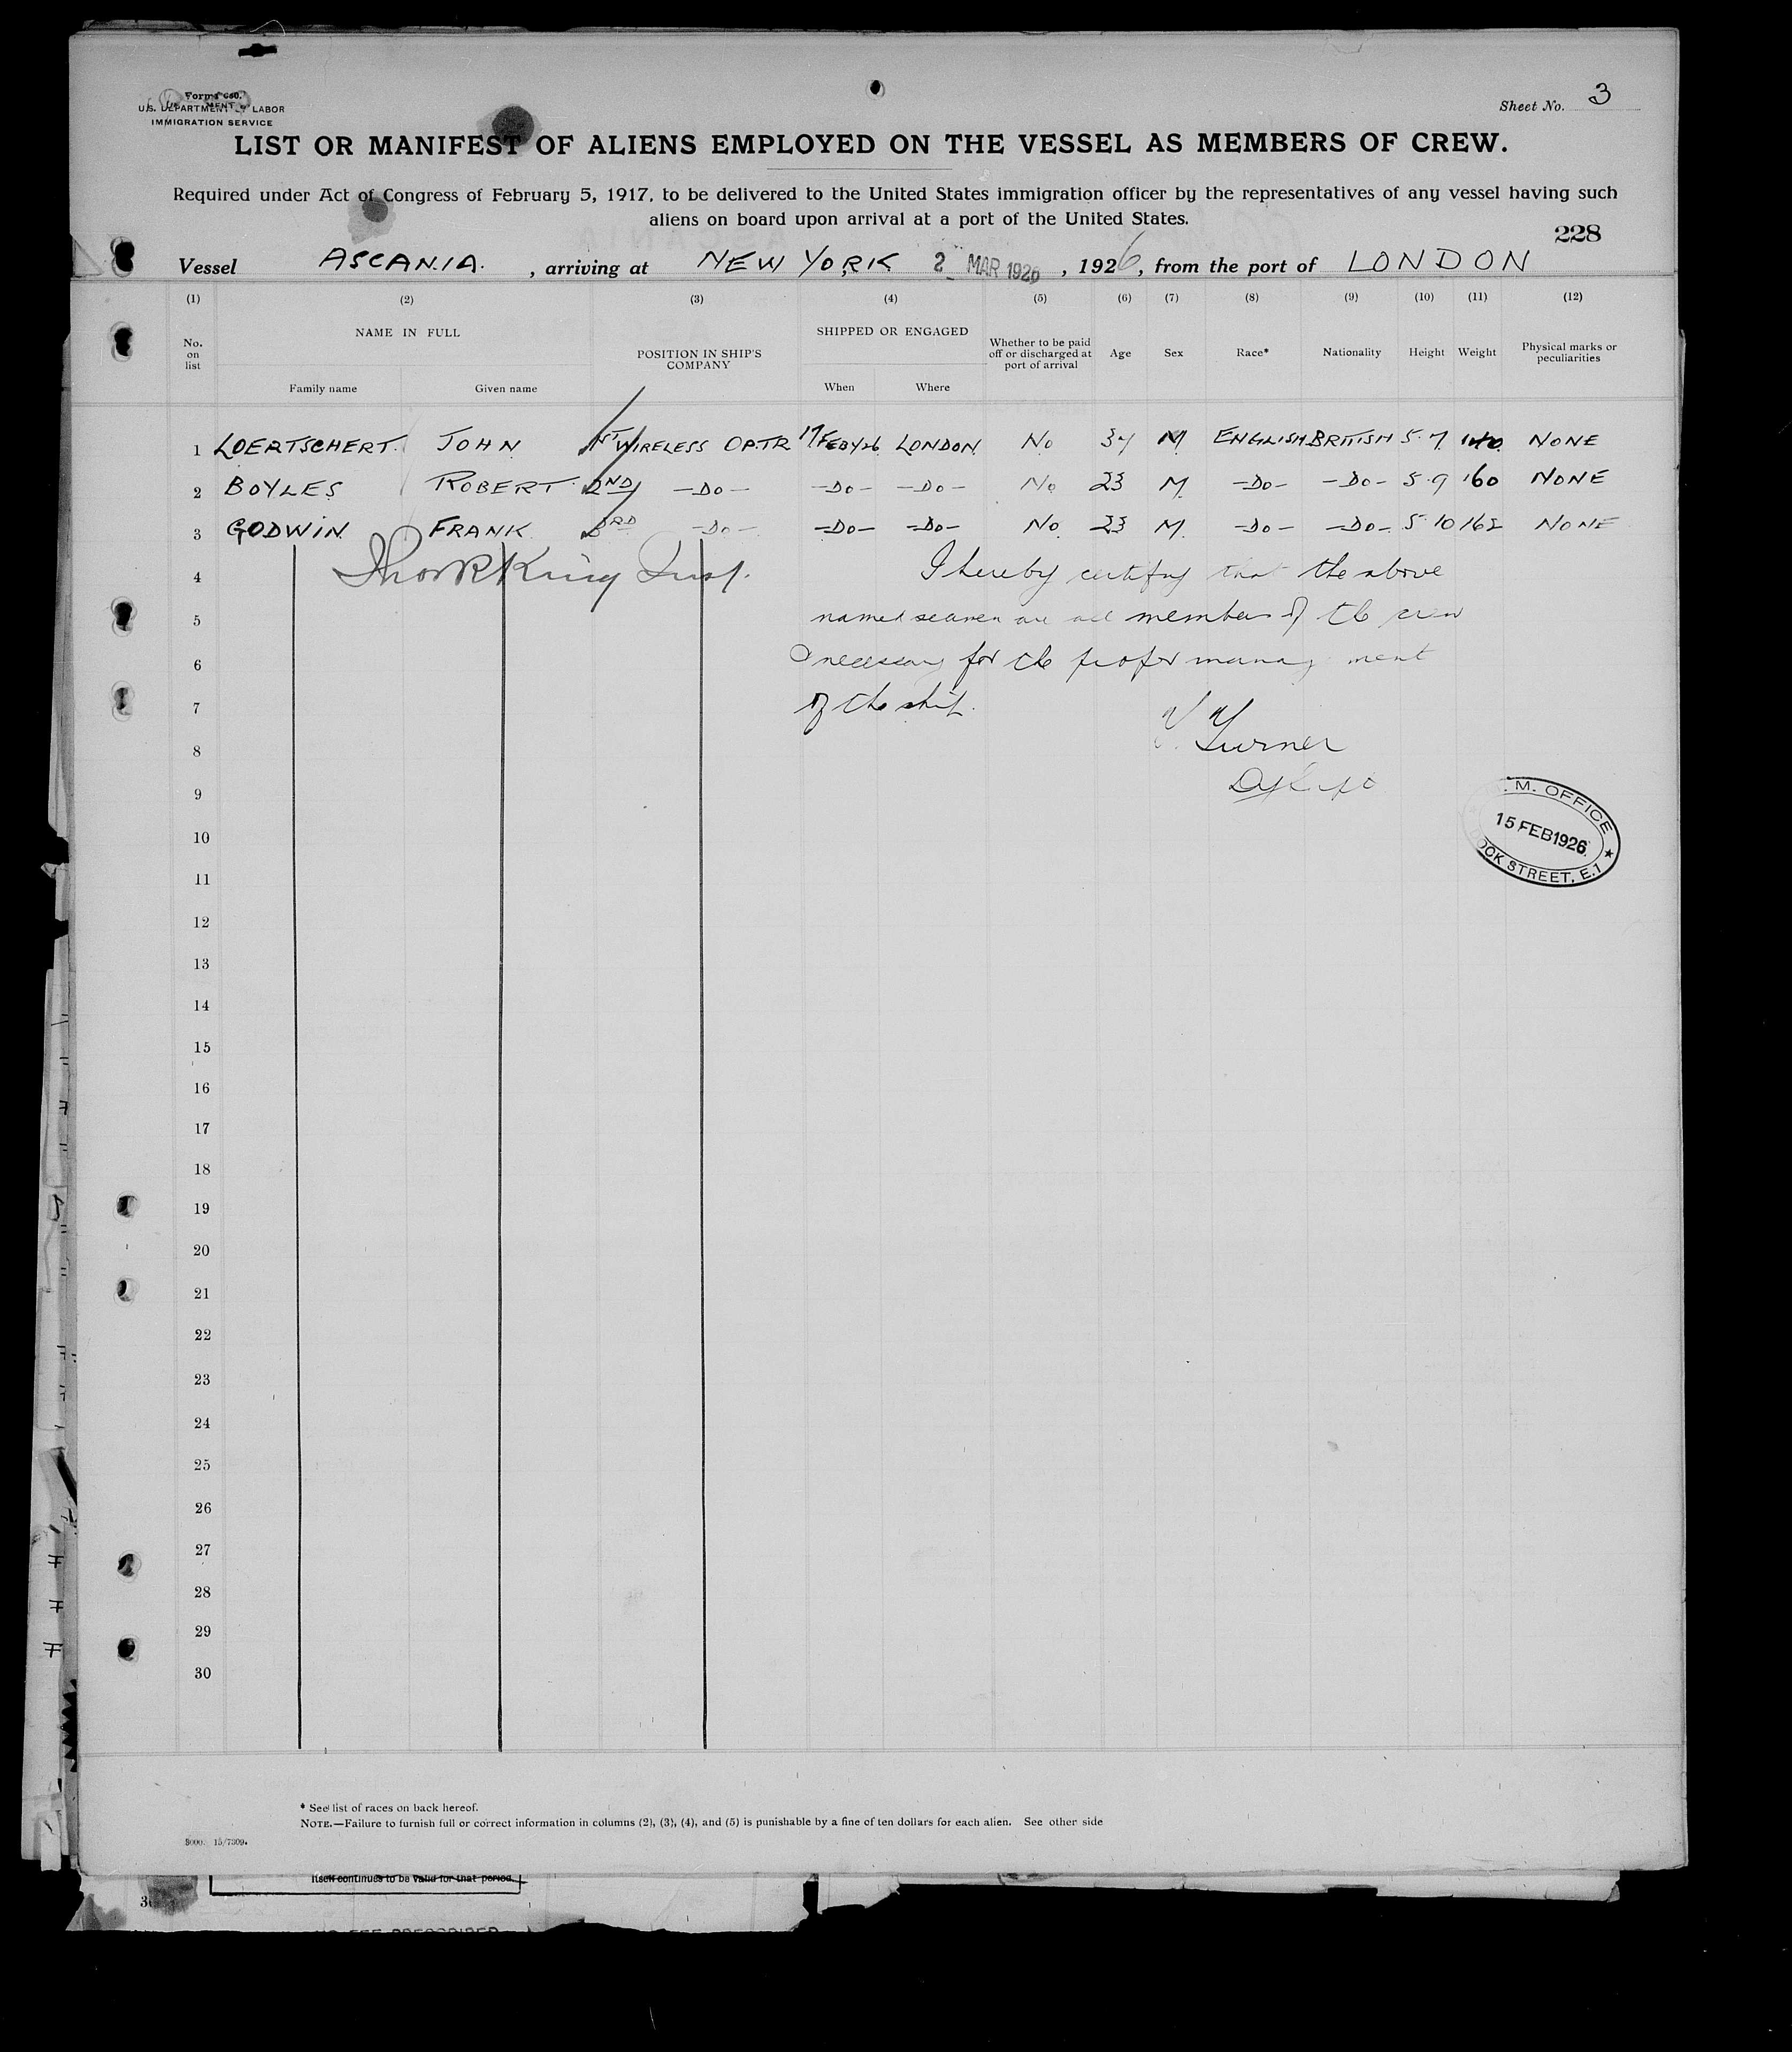 Form 680.
U.S. DEPARTMENT OF LABOR
IMMIGRATION SERVICE
Sheet No. 3
LIST OR MANIFEST OF ALIENS EMPLOYED ON THE VESSEL AS MEMBERS OF CREW.
Required under Act of Congress of February 5, 1917, to be delivered to the United States immigration officer by the representatives of any vessel having such
aliens on board upon arrival at a port of the United States.
228
Vessel ASCANIA. , arriving at NEW YORK 2 MAR 1926 , 1926, from the port of LONDON
(1) (2) (3) (4) (5) (6) (7) (8) (9) (10) (11) (12)
No. on list NAME IN FULL Family name Given name POSITION IN SHIP'S COMPANY SHIPPED OR ENGAGED When Where Whether to be paid off or discharged at port of arrival Age Sex Race* Nationality Height Weight Physical marks or peculiarities
1 LOERTSCHERT. JOHN 1ST WIRELESS OPTR 17 FEBY 26 LONDON. No 34 M ENGLISH BRITISH 5.7 140 NONE
2 BOYLES ROBERT 2ND -Do- -Do- -Do- No 23 M. -Do- -Do- 5.9 160 NONE
3 GODWIN. FRANK 3RD -Do- -Do- -Do- No. 23 M. -Do- -Do- 5.10 162 NONE
4 King Insp. I hereby certify that the above
5 named seamen are all members of the crew
6 necessary for the proper management
7 of the ship.
8 Turner
9
M. OFFICE
15 FEB 1926
DOCK STREET, E.1
10
11
12
13
14
15
16
17
18
19
20
21
22
23
24
25
26
27
28
29
30
* See list of races on back hereof.
NOTE.—Failure to furnish full or correct information in columns (2), (3), (4), and (5) is punishable by a fine of ten dollars for each alien. See other side
5000. 15/7309.
itself continues to be valid for that period.
NO FEE PRESCRIBED